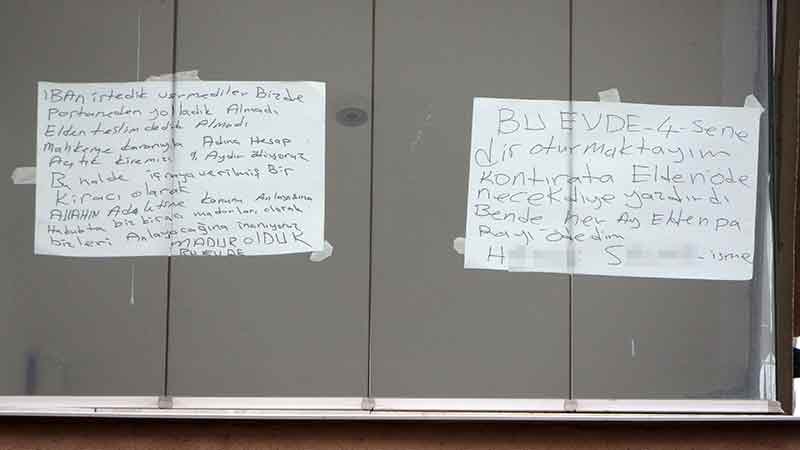 İBAN istedik vermediler Bizde
Postaneden yolladık Almadı
Elden teslim dedik Almadı
Mahkeme kararıyla Adına Hesap
Açtık kiremizi 9. Aydır
Bu halde icraya verilmiş Bir
kiracı olarak
ALLAHIN Adaletine
Hukukta biz kiracı olarak
bizleri Anlayacağına inanıyoruz
MADUR OLDUK
BU EVDE
BU EVDE-4-Sene
dir oturmaktayım
kontırata Elden öde
necek diye yazdırdı
Bende her Ay Elten pa
Rayı ödedim
H S -isme